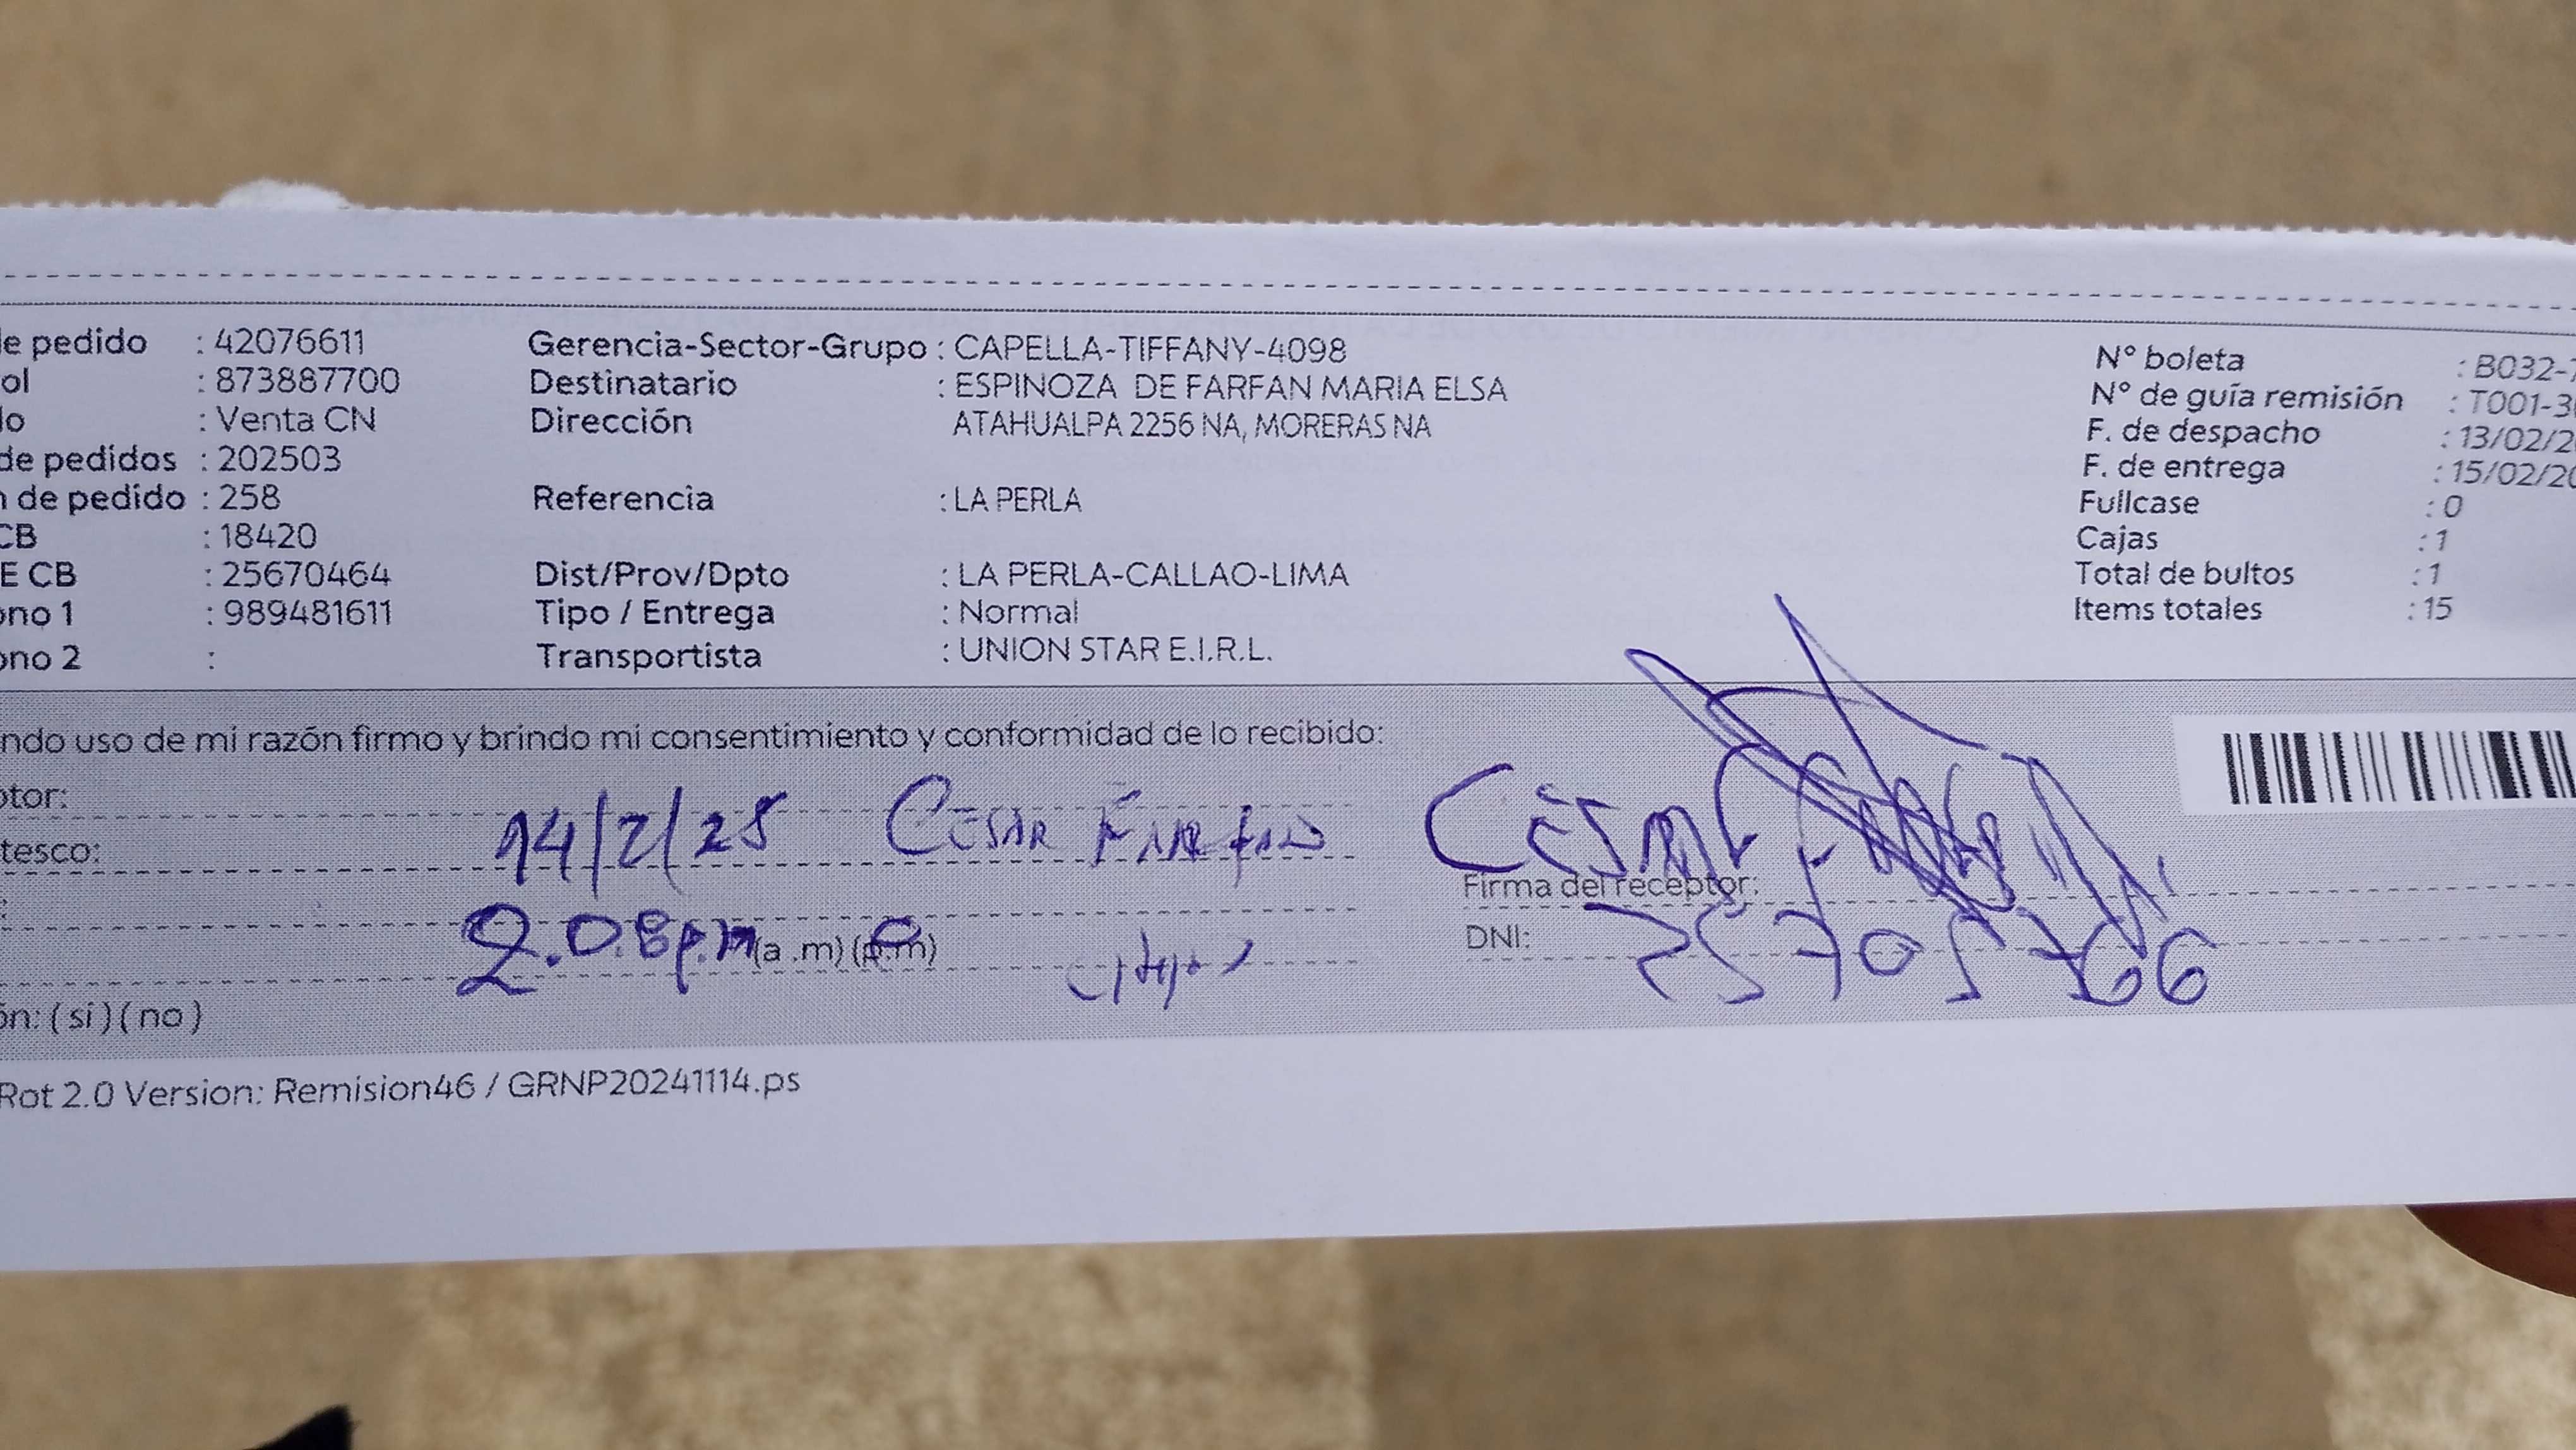 e pedido : 42076611 Gerencia-Sector-Grupo : CAPELLA-TIFFANY-4098 N° boleta : B032-
ol : 873887700 Destinatario : ESPINOZA DE FARFAN MARIA ELSA N° de guía remisión : T001-3
do : Venta CN Dirección ATAHUALPA 2256 NA, MORERAS NA F. de despacho : 13/02/2
de pedidos : 202503 F. de entrega : 15/02/20
n de pedido : 258 Referencia : LA PERLA Fullcase : 0
CB : 18420 Cajas : 1
E CB : 25670464 Dist/Prov/Dpto : LA PERLA-CALLAO-LIMA Total de bultos : 1
ono 1 : 989481611 Tipo / Entrega : Normal Items totales : 15
ono 2 : Transportista : UNION STAR E.I.R.L.
ndo uso de mi razón firmo y brindo mi consentimiento y conformidad de lo recibido:
ptor:
tesco: 14/2/25 CESAR FARFAN
Firma del receptor:
: 2.08 p.m (a .m) (p.m)
DNI: 25705766
ón: ( si ) ( no )
Rot 2.0 Version: Remision46 / GRNP20241114.ps